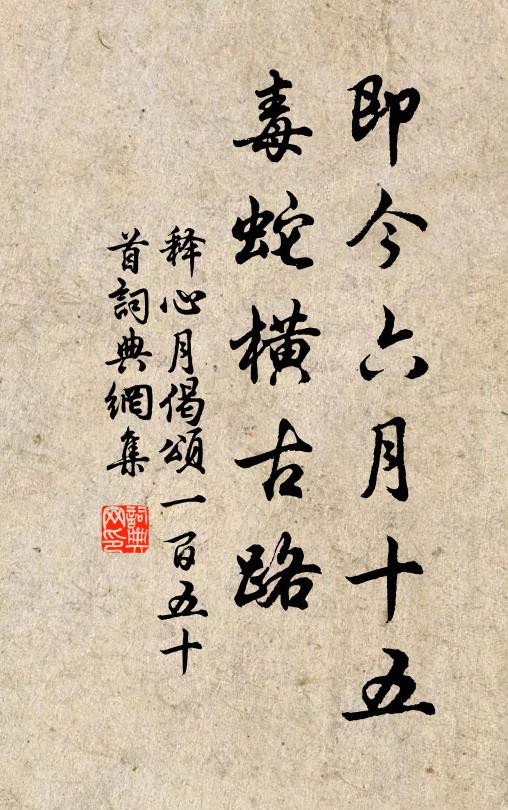 即今六月十五
毒蛇橫古路
释心月偈頌一百五十
首詞典網集
詞典网印